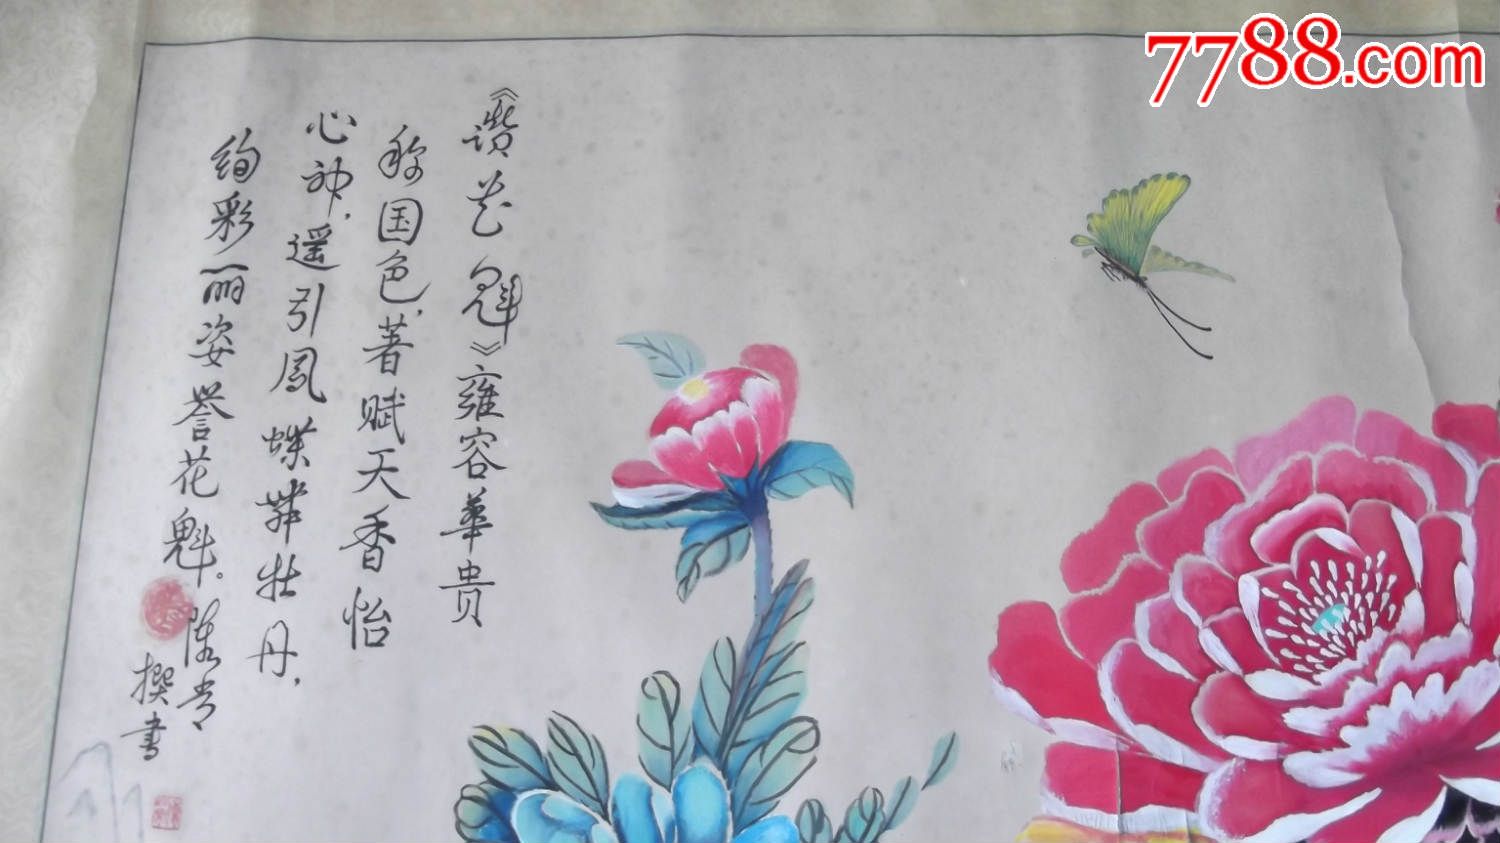 《讚花魁》雍容華贵
称国色，著赋天香怡
心神，遥引凤蝶舞牡丹，
绚彩丽姿誉花魁。陈
撰书
7788.com